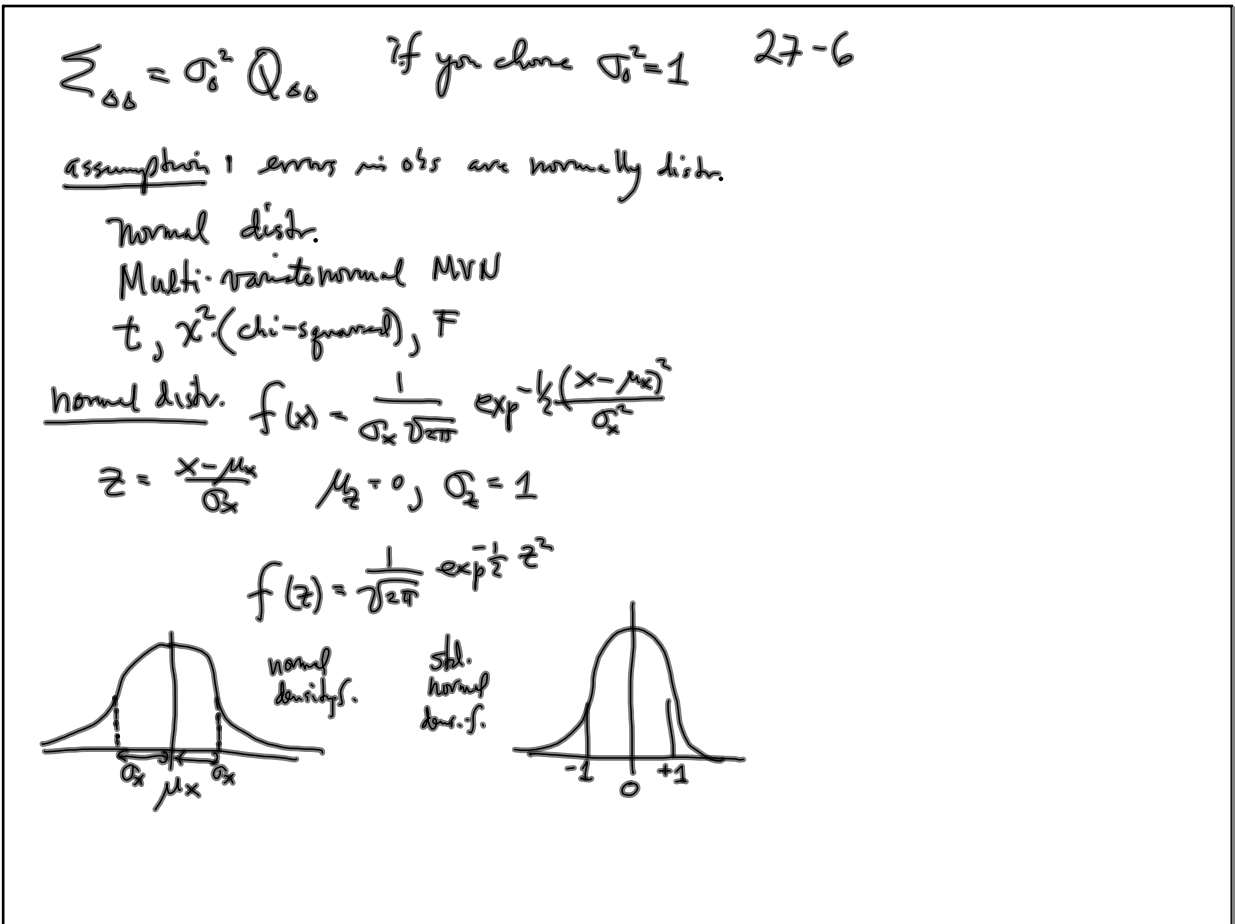 Σ_ΔΔ = σ₀² Q_ΔΔ if you choose σ₀² = 1 27-6
assumption: errors in obs are normally distr.
normal distr.
Multi-variate normal MVN
t, χ² (chi-squared), F
normal distr. f(x) = 1/(σₓ√2π) exp^(-1/2 (x-μₓ)²/σₓ²)
z = (x-μₓ)/σₓ μ_z = 0, σ_z = 1
f(z) = 1/√2π exp^(-1/2 z²)
normal
density f.
std.
normal
den. f.
σₓ μₓ σₓ
-1 0 +1